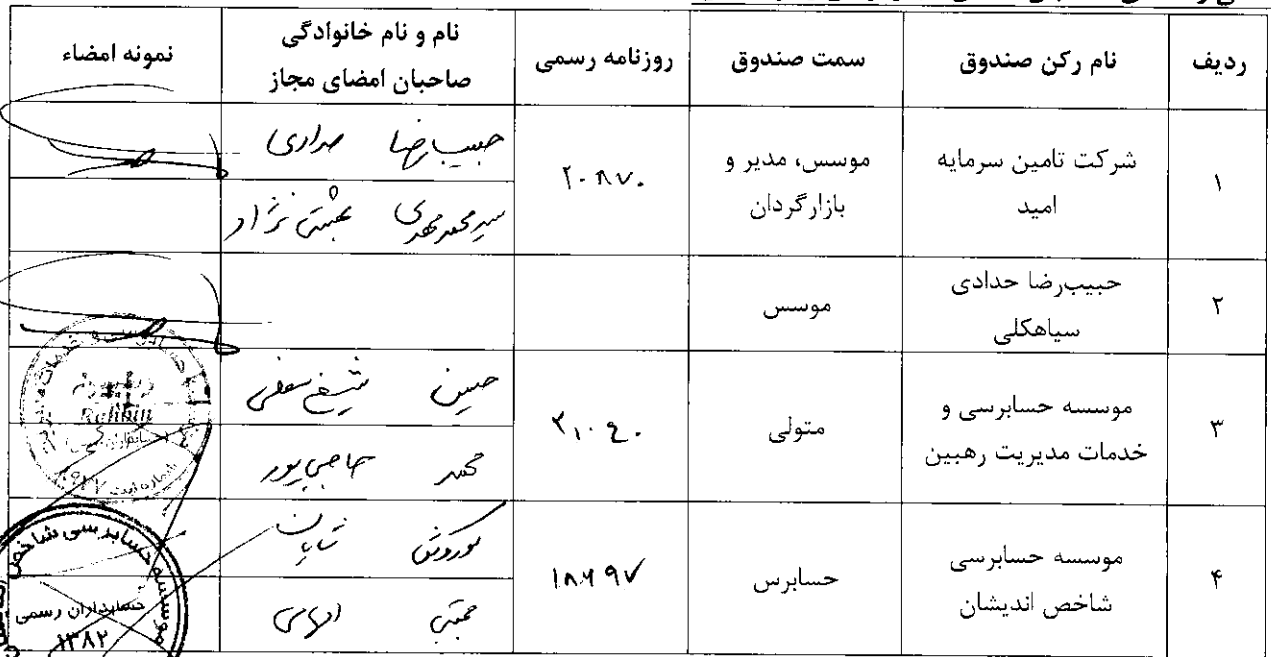 ردیف
نام رکن صندوق
سمت صندوق
روزنامه رسمی
نام و نام خانوادگی
صاحبان امضای مجاز
نمونه امضاء
۱
شرکت تامین سرمایه
امید
موسس، مدیر و
بازارگردان
۲۰۸۷۰
حبیب رضا حدادی
سید محمد مهدی
۲
حبیب‌رضا حدادی
سیاهکلی
موسس
۳
موسسه حسابرسی و
خدمات مدیریت رهبین
متولی
۲۱۰۴۰
حسین شیخ سفلی
محمد حاجی پور
Rahbin
۴
موسسه حسابرسی
شاخص اندیشان
حسابرس
۱۸۶۹۷
کوروش شایان
مجتبی الهامی
موسسه حسابرسی شاخص
حسابداران رسمی
۱۳۸۲